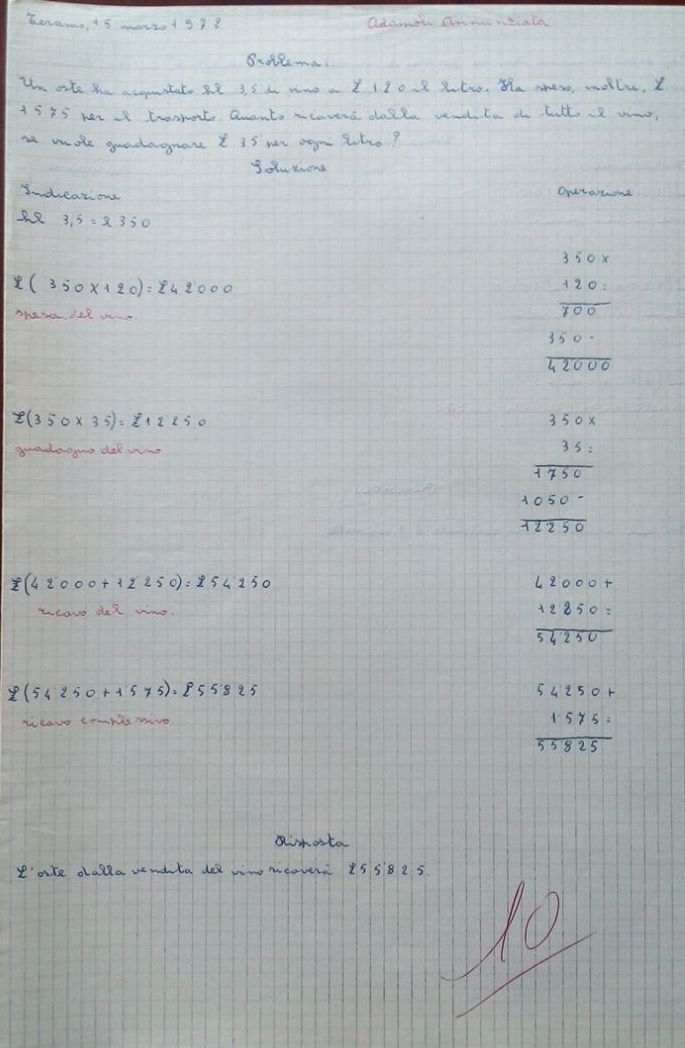 Teramo, 15 marzo 1972 Adamoli Annunziata
Problema.
Un oste ha acquistato hl 3,5 di vino a £ 120 il litro. Ha speso, inoltre, £
1575 per il trasporto. Quanto ricaverà dalla vendita di tutto il vino,
se vuole guadagnare £ 35 per ogni litro?
Soluzione
Indicazione Operazione
hl 3,5 = l 350
350x
£( 350x120)=£42000 120=
spesa del vino. 700
350-
42000
£(350x35)=£12250 350x
guadagno del vino 35=
1750
1050-
12250
£(42000+12250)=£54250 42000+
ricavo del vino. 12250=
54250
£(54250+1575)=£55825 54250+
ricavo complessivo 1575=
55825
Risposta
L'oste dalla vendita del vino ricaverà £55825.
10